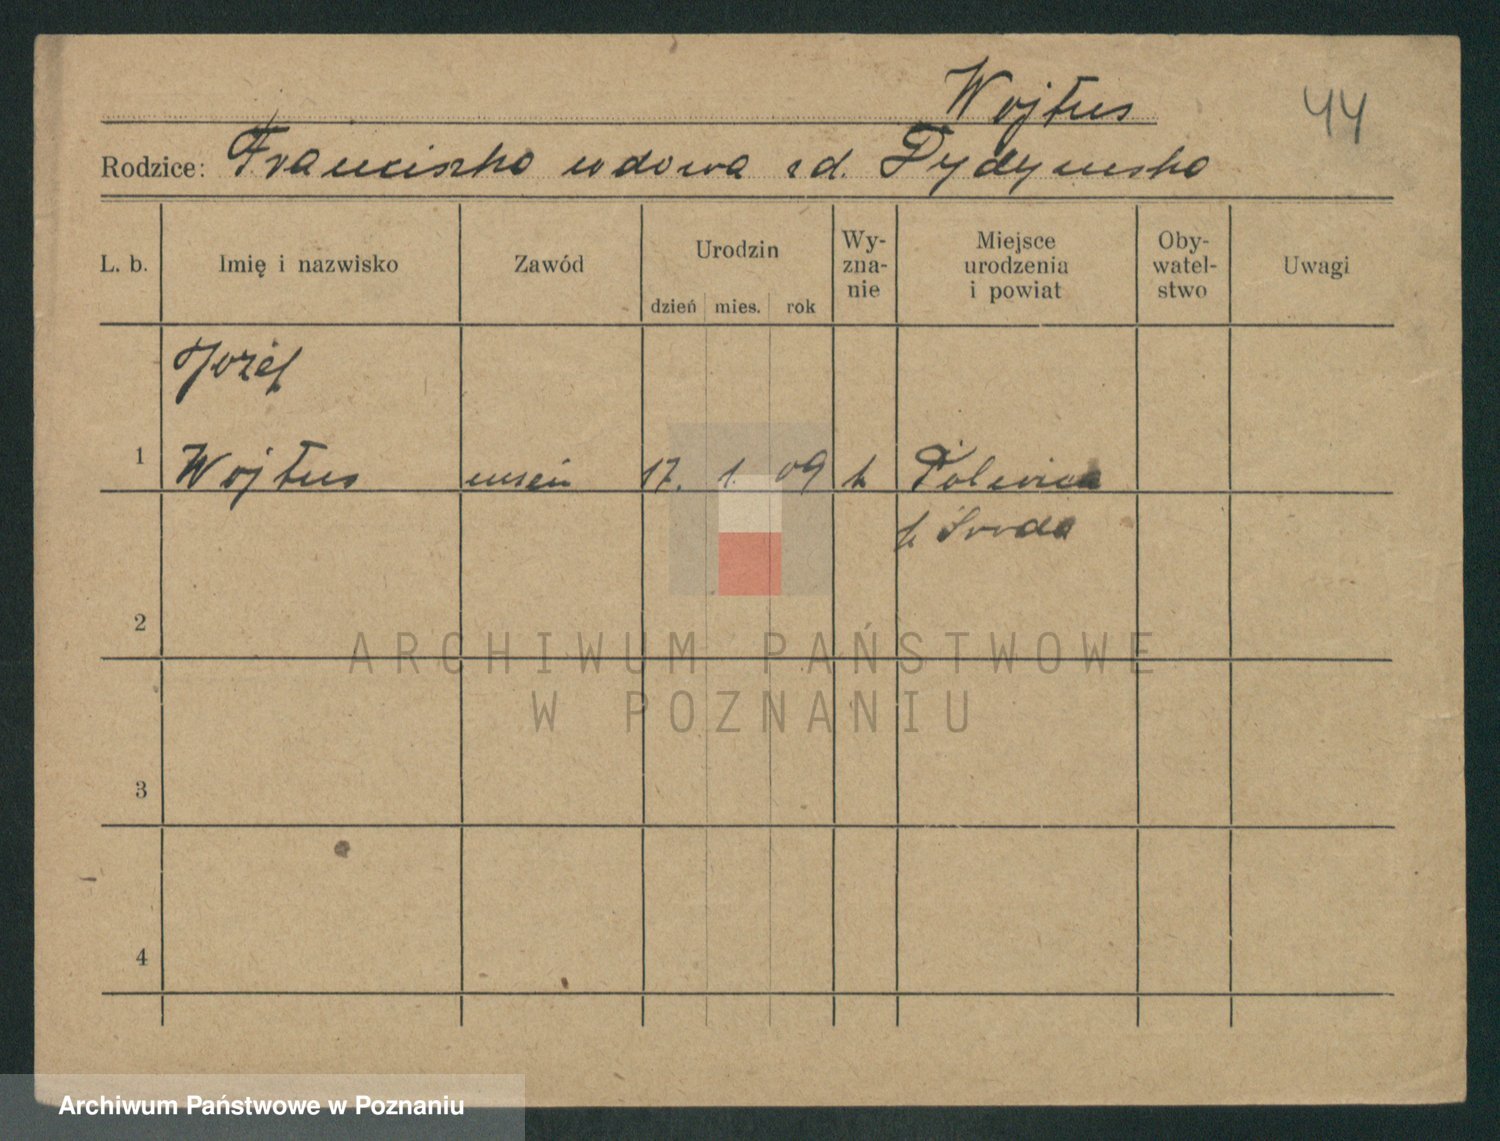 Wojtus 44
Rodzice: Franciszka wdowa zd. Dydymska
L. b. Imię i nazwisko Zawód Urodzin dzień mies. rok Wy-zna-nie Miejsce urodzenia i powiat Oby-watel-stwo Uwagi
Józef
1 Wojtus uczeń 17. 1. 09 k
p. Środa
2
ARCHIWUM PAŃSTWOWE
W POZNANIU
3
4
Archiwum Państwowe w Poznaniu